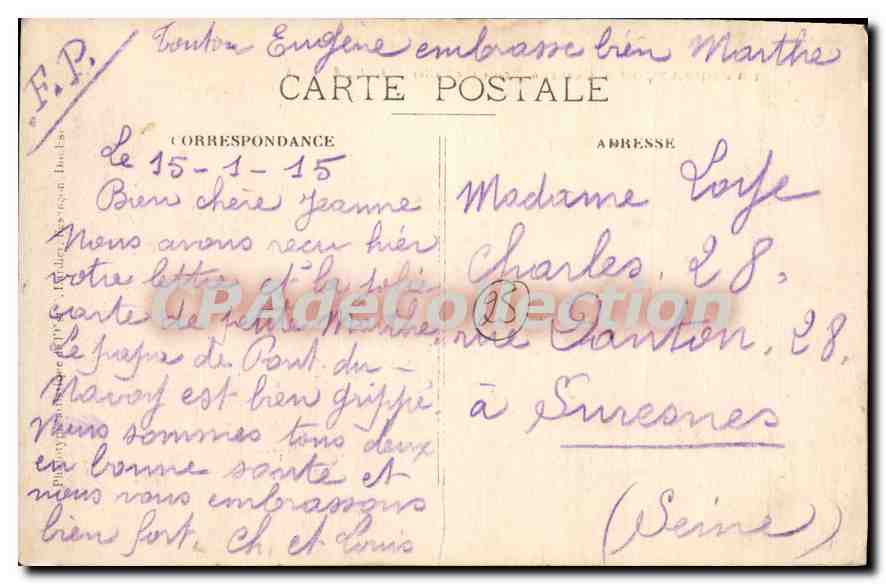 F.P.
Tonton Eugène embrasse bien Marthe
CARTE POSTALE
CORRESPONDANCE
ADRESSE
Le 15-1-15
Bien chère Jeanne
Nous avons reçu hier
votre lettre et la jolie
carte de petite Marthe.
Le papa de Pont-du-
Navoy est bien grippé.
Nous sommes tous deux
en bonne santé et
nous vous embrassons
bien fort. Ch. et Louis
Madame Loye
Charles, 28,
rue Danton, 28,
à Suresnes
(Seine)
CPADeCollection